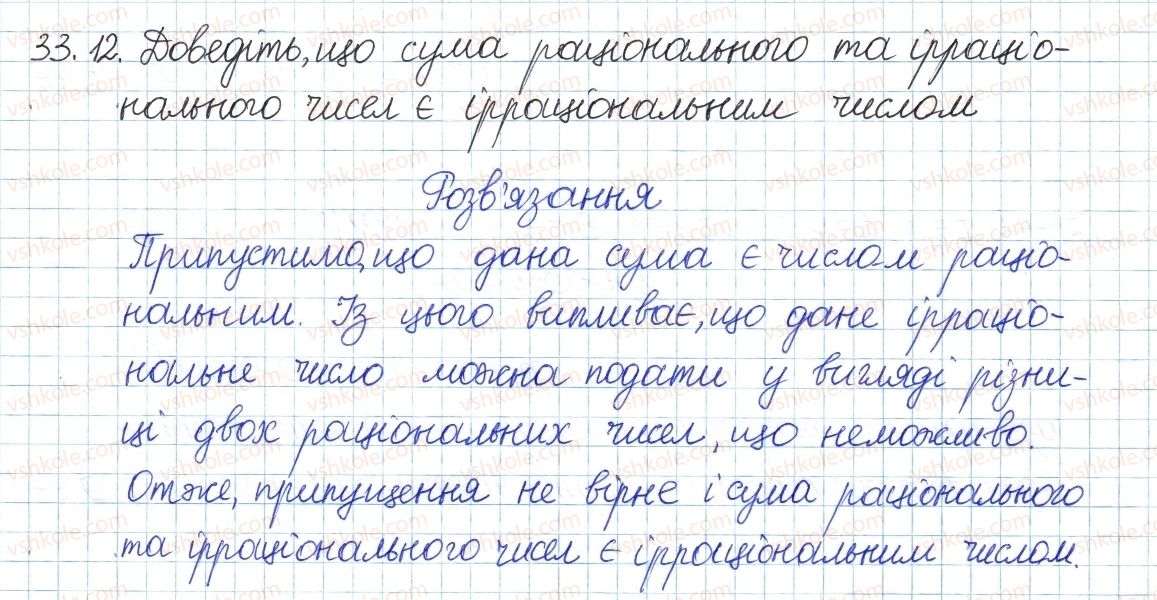 33.12. Доведіть, що сума раціонального та ірраціо-
нального чисел є ірраціональним числом
Розв'язання
Припустимо, що дана сума є числом раціо-
нальним. Із цього випливає, що дане ірраціо-
нальне число можна подати у вигляді різни-
ці двох раціональних чисел, що неможливо.
Отже, припущення не вірнє і сума раціонального
та ірраціонального чисел є ірраціональним числом.